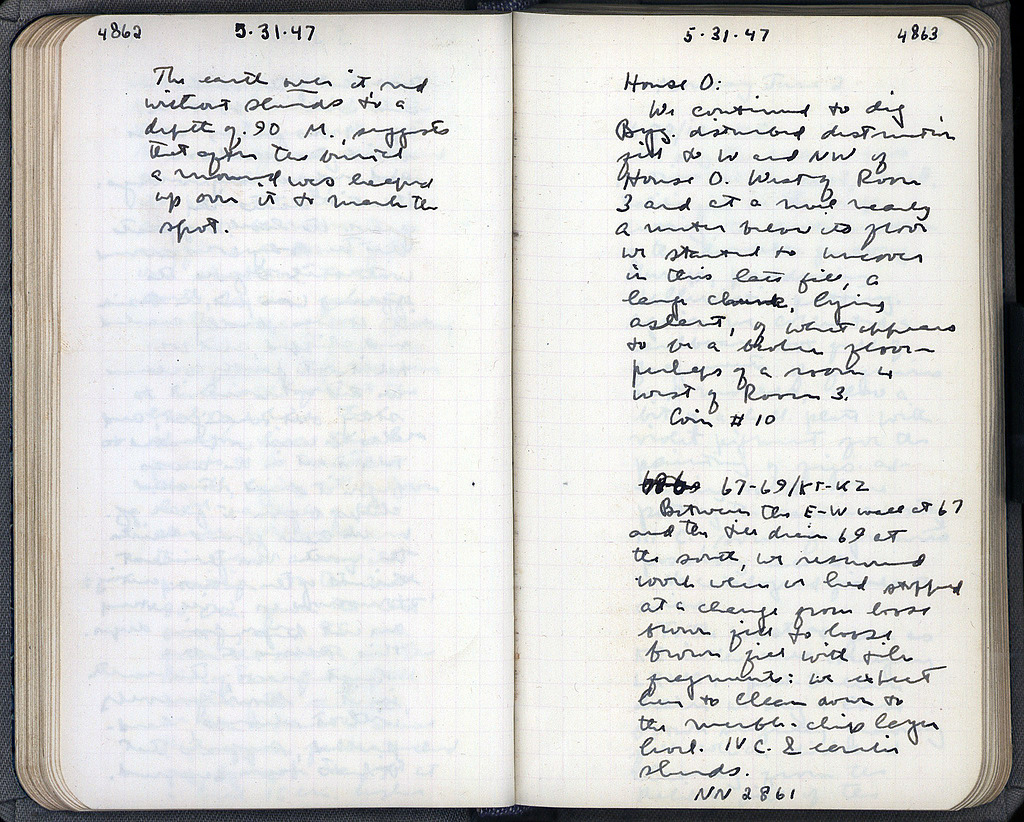 4862 5·31·47
The earth over it, red
without sherds to a
depth of .90 M. suggests
that after the burial
a mound was heaped
up over it to mark the
spot.
5·31·47 4863
House O:
We continued to dig
Byz. disturbed destruction
fill to W and NW of
House O. West of Room
3 and at a level nearly
a meter below its floor
we started to uncover
in this late fill, a
large chunk, lying
aslant, of what appears
to be a broken floor
perhaps of a room
west of Room 3.
Coin #10
67-69/ΚΓ-ΚΖ
Between the E-W wall at 67
and the tile drain 69 at
the south, we resumed
work where we had stopped
at a change from loose
brown fill to loose
brown fill with tile
fragments: we expect
here to clean down to
the marble-chip layer
level. IV C. & earlier
sherds.
NN 2861